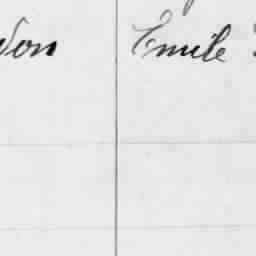 son Emile